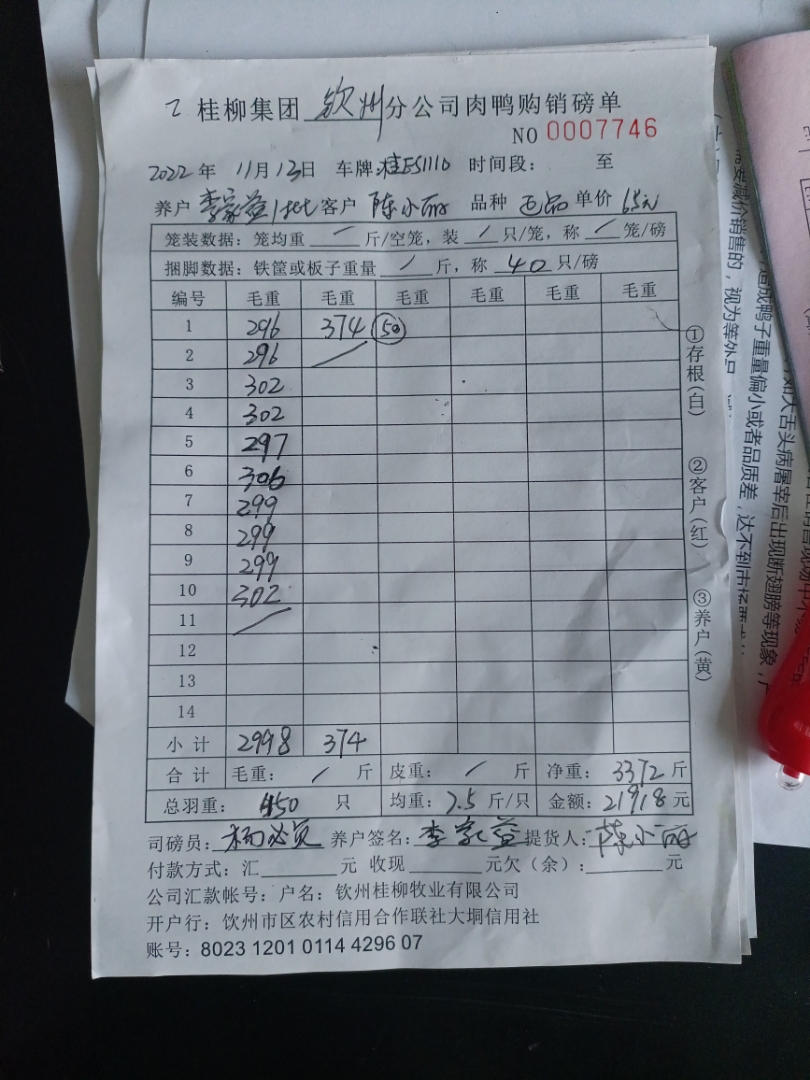 桂柳集团 钦州 分公司肉鸭购销磅单
NO 0007746
2022 年 11月 13日 车牌: 桂ES1110 时间段: 至
养户 李家益 1批 客户 陈小丽 品种 正品 单价 6.5元
笼装数据：笼均重 / 斤/空笼，装 / 只/笼，称 / 笼/磅
捆脚数据：铁筐或板子重量 / 斤，称 40 只/磅
编号 毛重 毛重 毛重 毛重 毛重 毛重
1 296 374 50
2 296 /
3 302
4 302
5 297
6 306
7 299
8 299
9 299
10 302
11 /
12
13
14
小计 2998 374
合计 毛重： / 斤 皮重： / 斤 净重： 3372 斤
总羽重： 450 只 均重：7.5 斤/只 金额：21918 元
司磅员： 养户签名：李家益 提货人：陈小丽
付款方式：汇 元 收现 元欠（余）： 元
公司汇款帐号：户名：钦州桂柳牧业有限公司
开户行：钦州市区农村信用合作联社大垌信用社
账号：8023 1201 0114 4296 07
①存根(白)
②客户(红)
③养户(黄)
减价销售的，视为等外品
造成鸭子重量偏小或者品质差，达不到市场
大舌头病屠宰后出现断翅膀等现象，